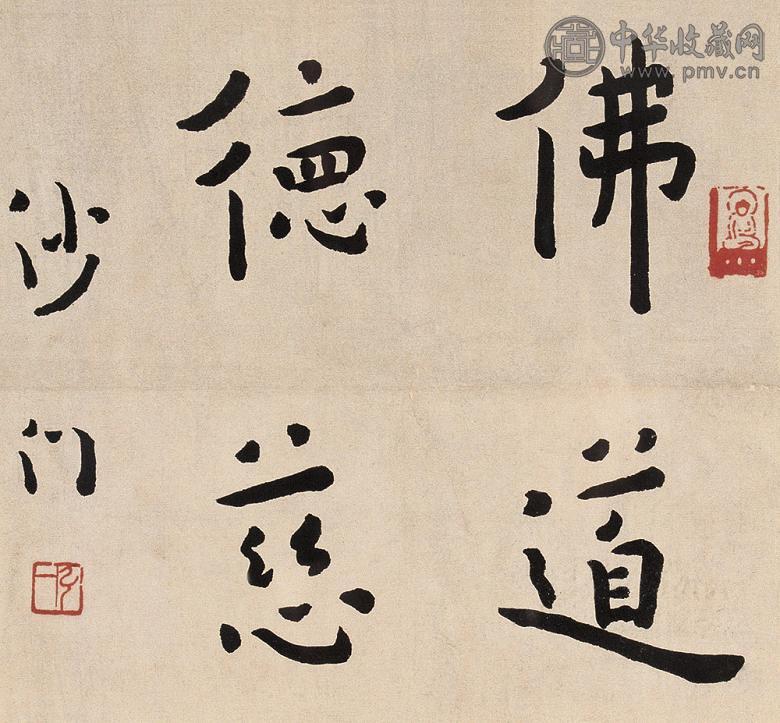 佛道
德慈
沙门
中华收藏网
www.pmv.cn